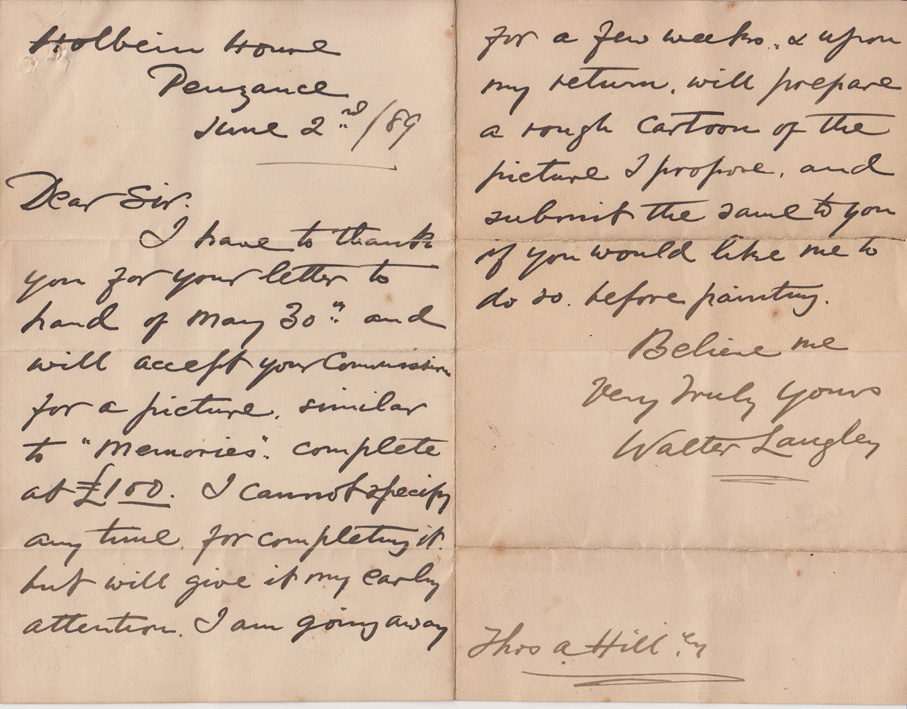 Holbein House
Penzance
June 2nd/89
Dear Sir.
I have to thank
you for your letter to
hand of May 30th and
will accept your Commission
for a picture, similar
to "Memories". complete
at £100. I cannot specify
any time, for completing it.
but will give it my early
attention. I am going away
for a few weeks, & upon
my return, will prepare
a rough cartoon of the
picture I propose, and
submit the same to you
if you would like me to
do so. before painting.
Believe me
Very Truly Yours
Walter Langley
Thos A Hill Esq